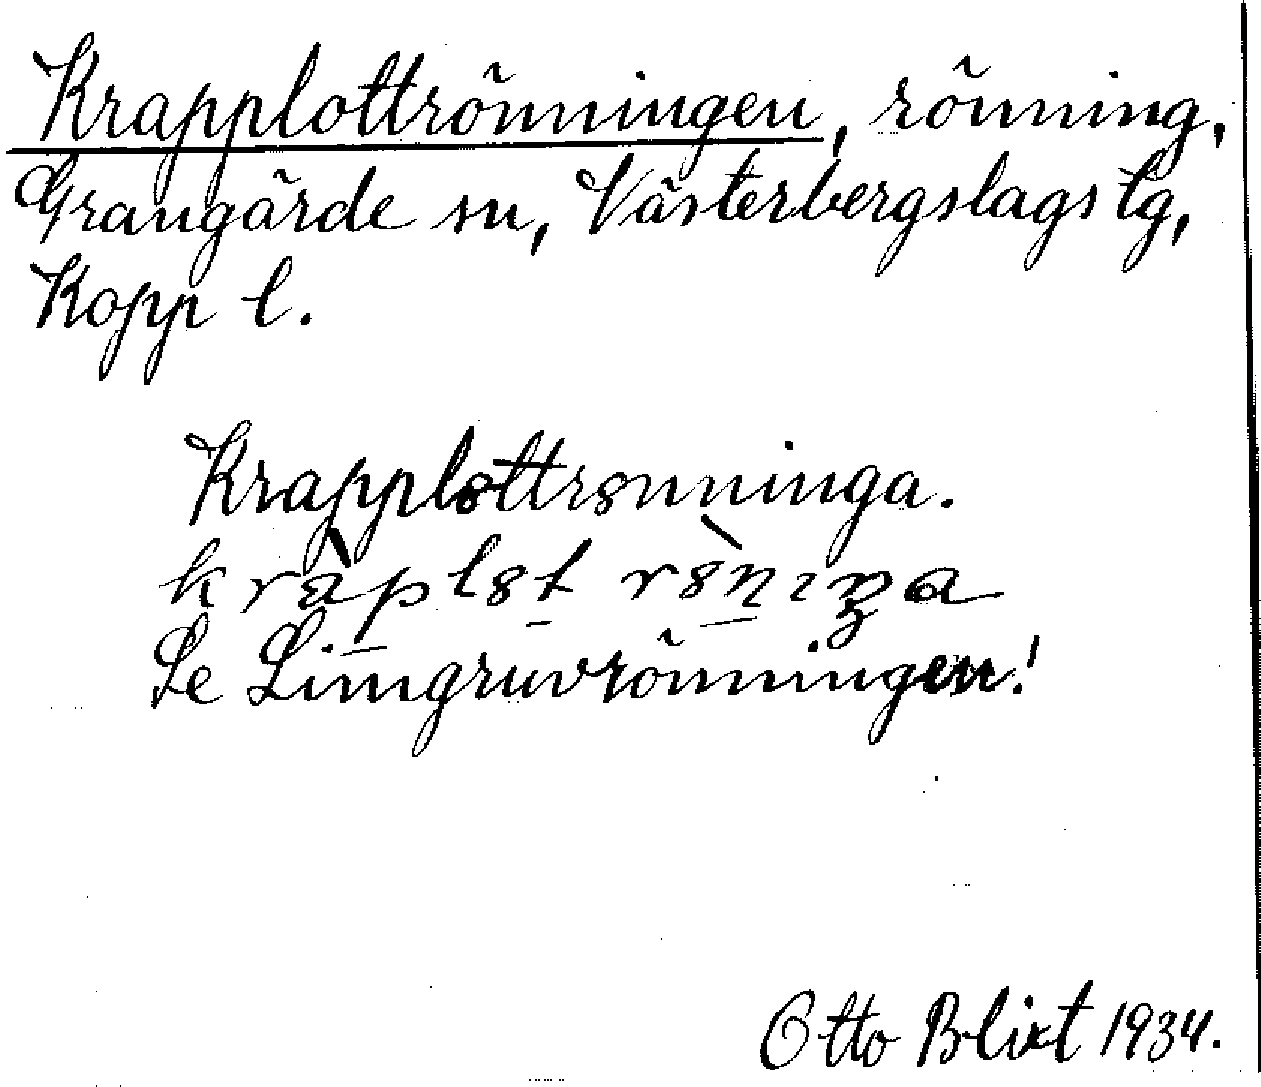 Krapplottrönningen, rönning,
Grangärde sn, Västerbergslags tg,
Kopp l.
Krapplottrönninga.
Se Limgruvrönningen!
Otto Blixt 1934.